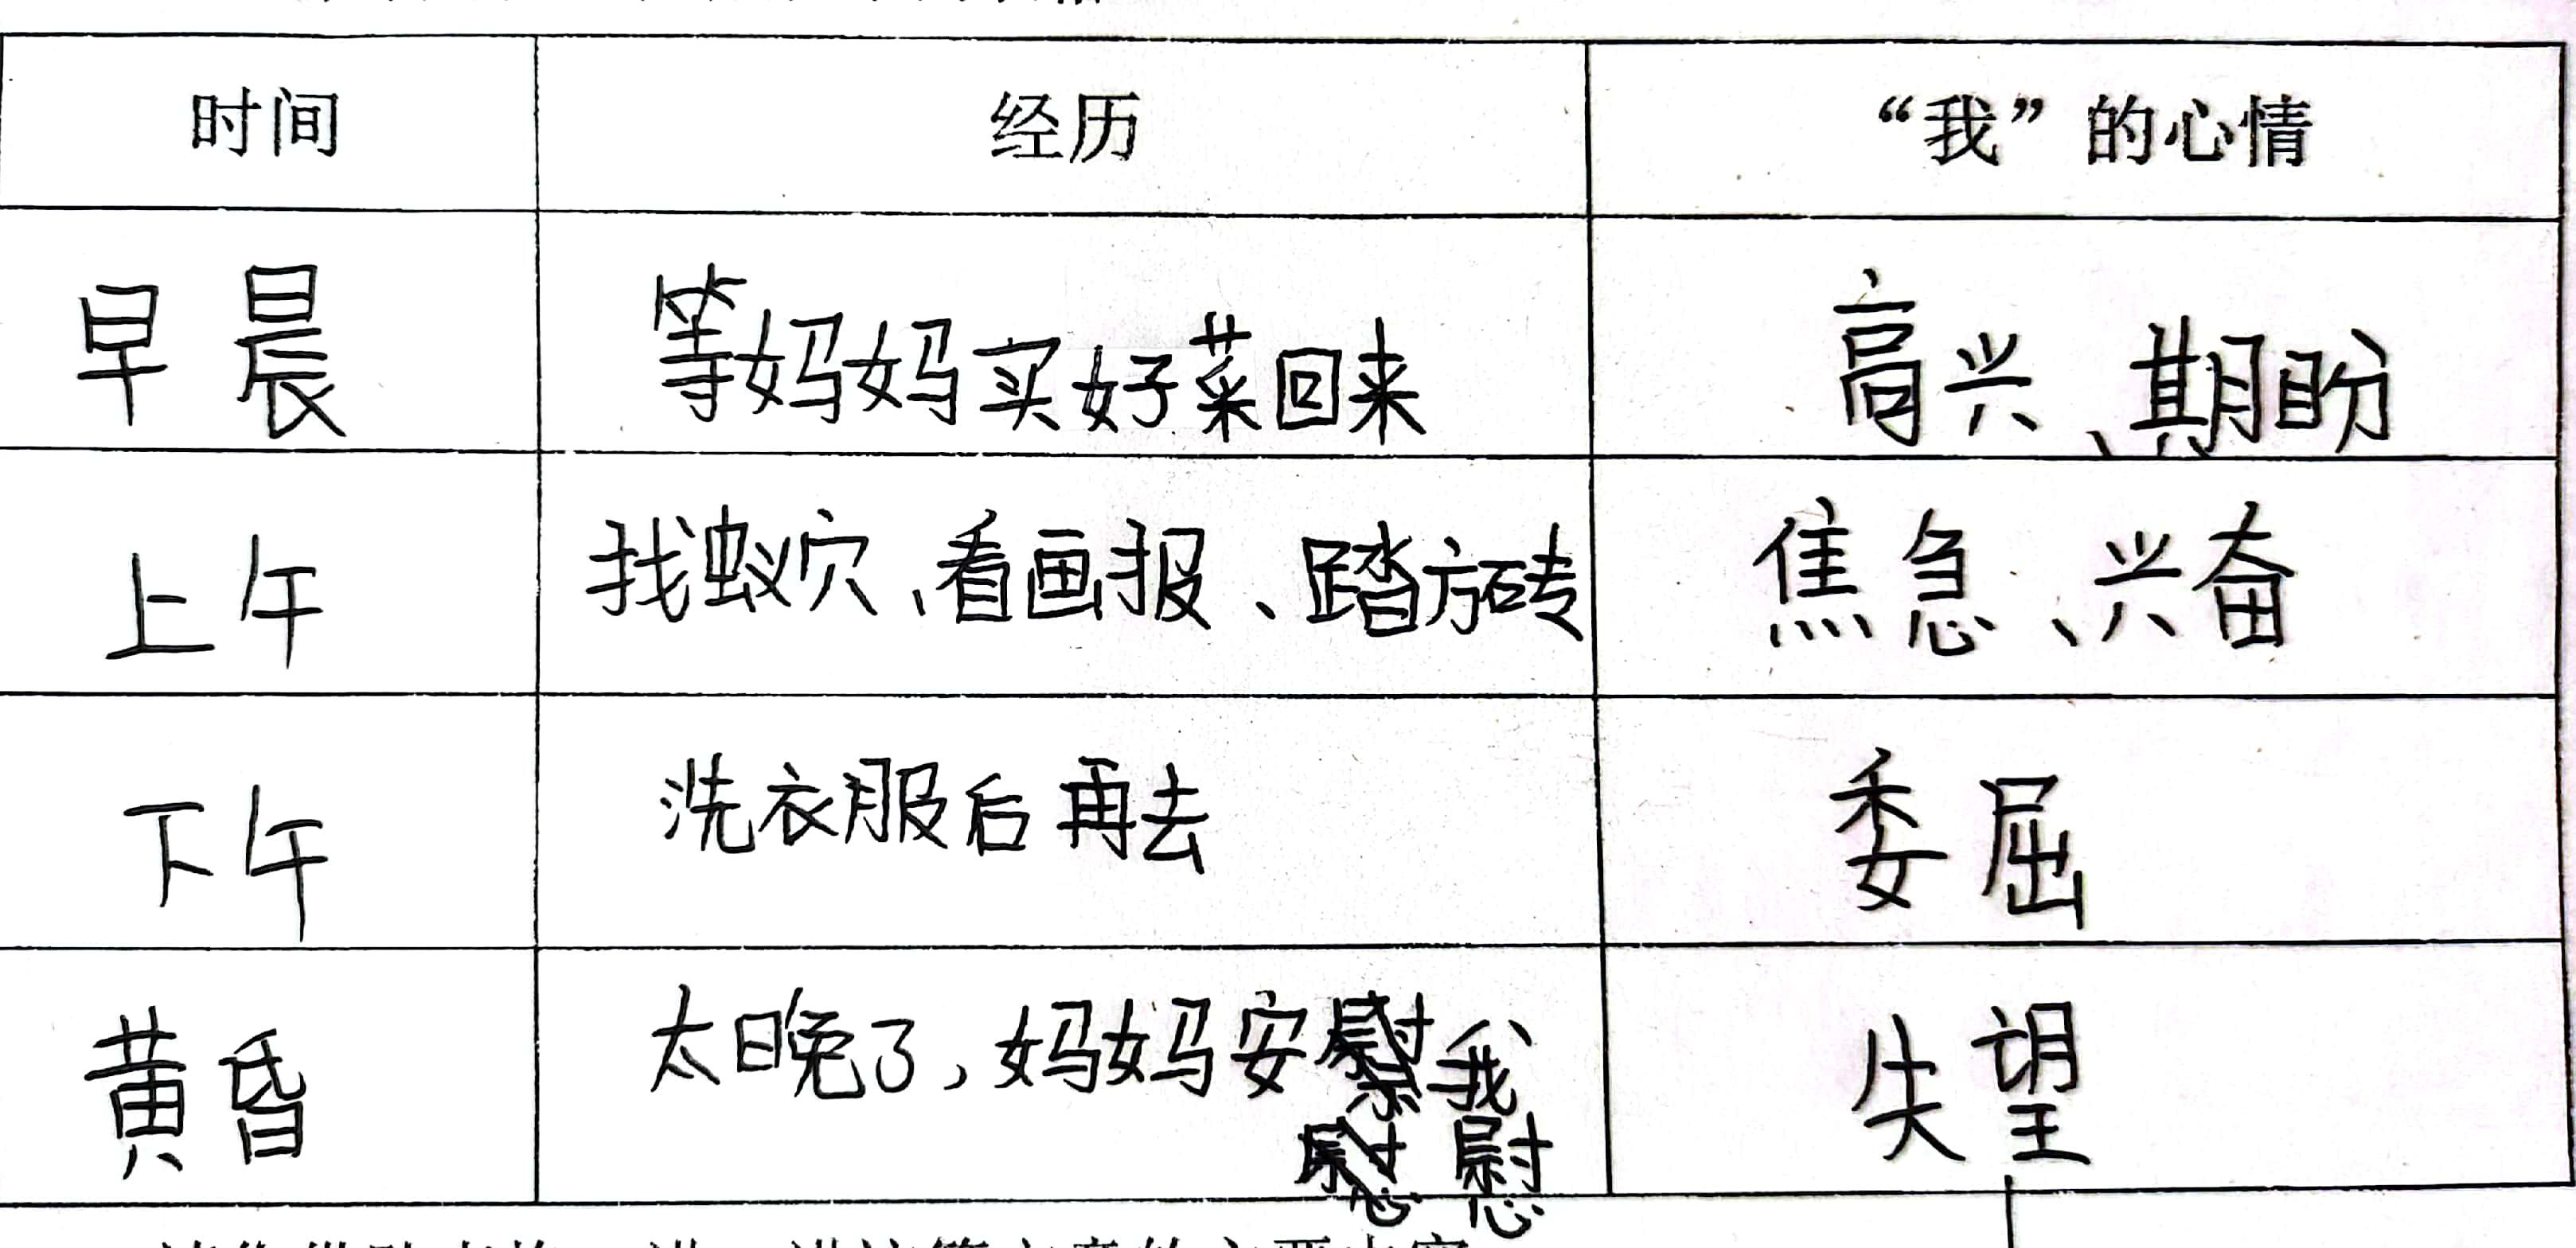 时间 经历 “我”的心情
早晨 等妈妈买好菜回来 高兴、期盼
上午 找蚁穴、看画报、踏方砖 焦急、兴奋
下午 洗衣服后再去 委屈
黄昏 太晚了,妈妈安我 失望
慰